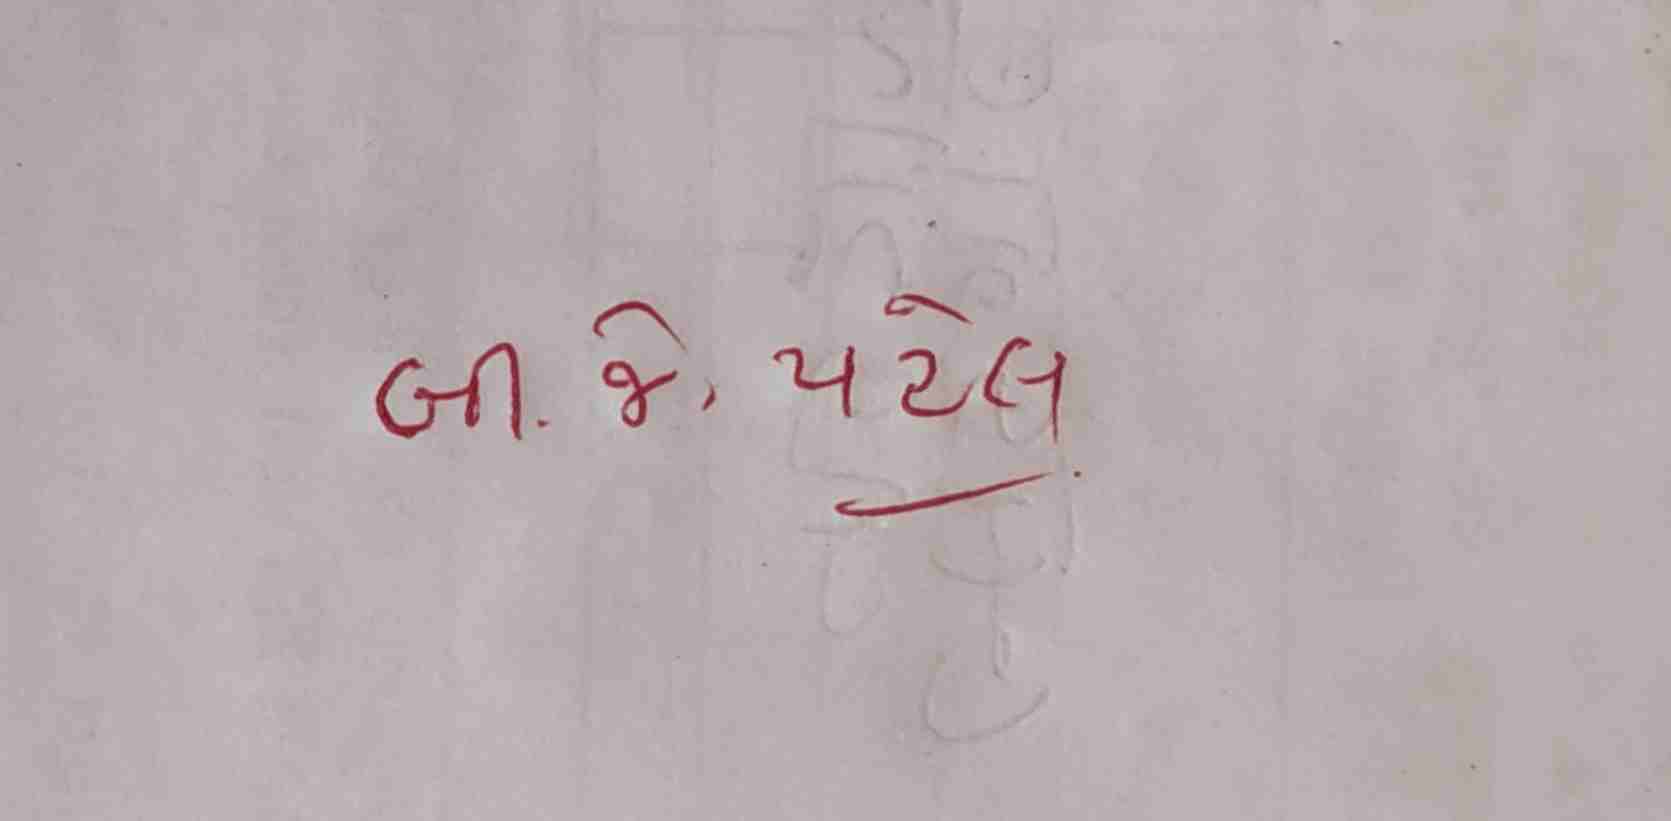 બી. જે. પટેલ